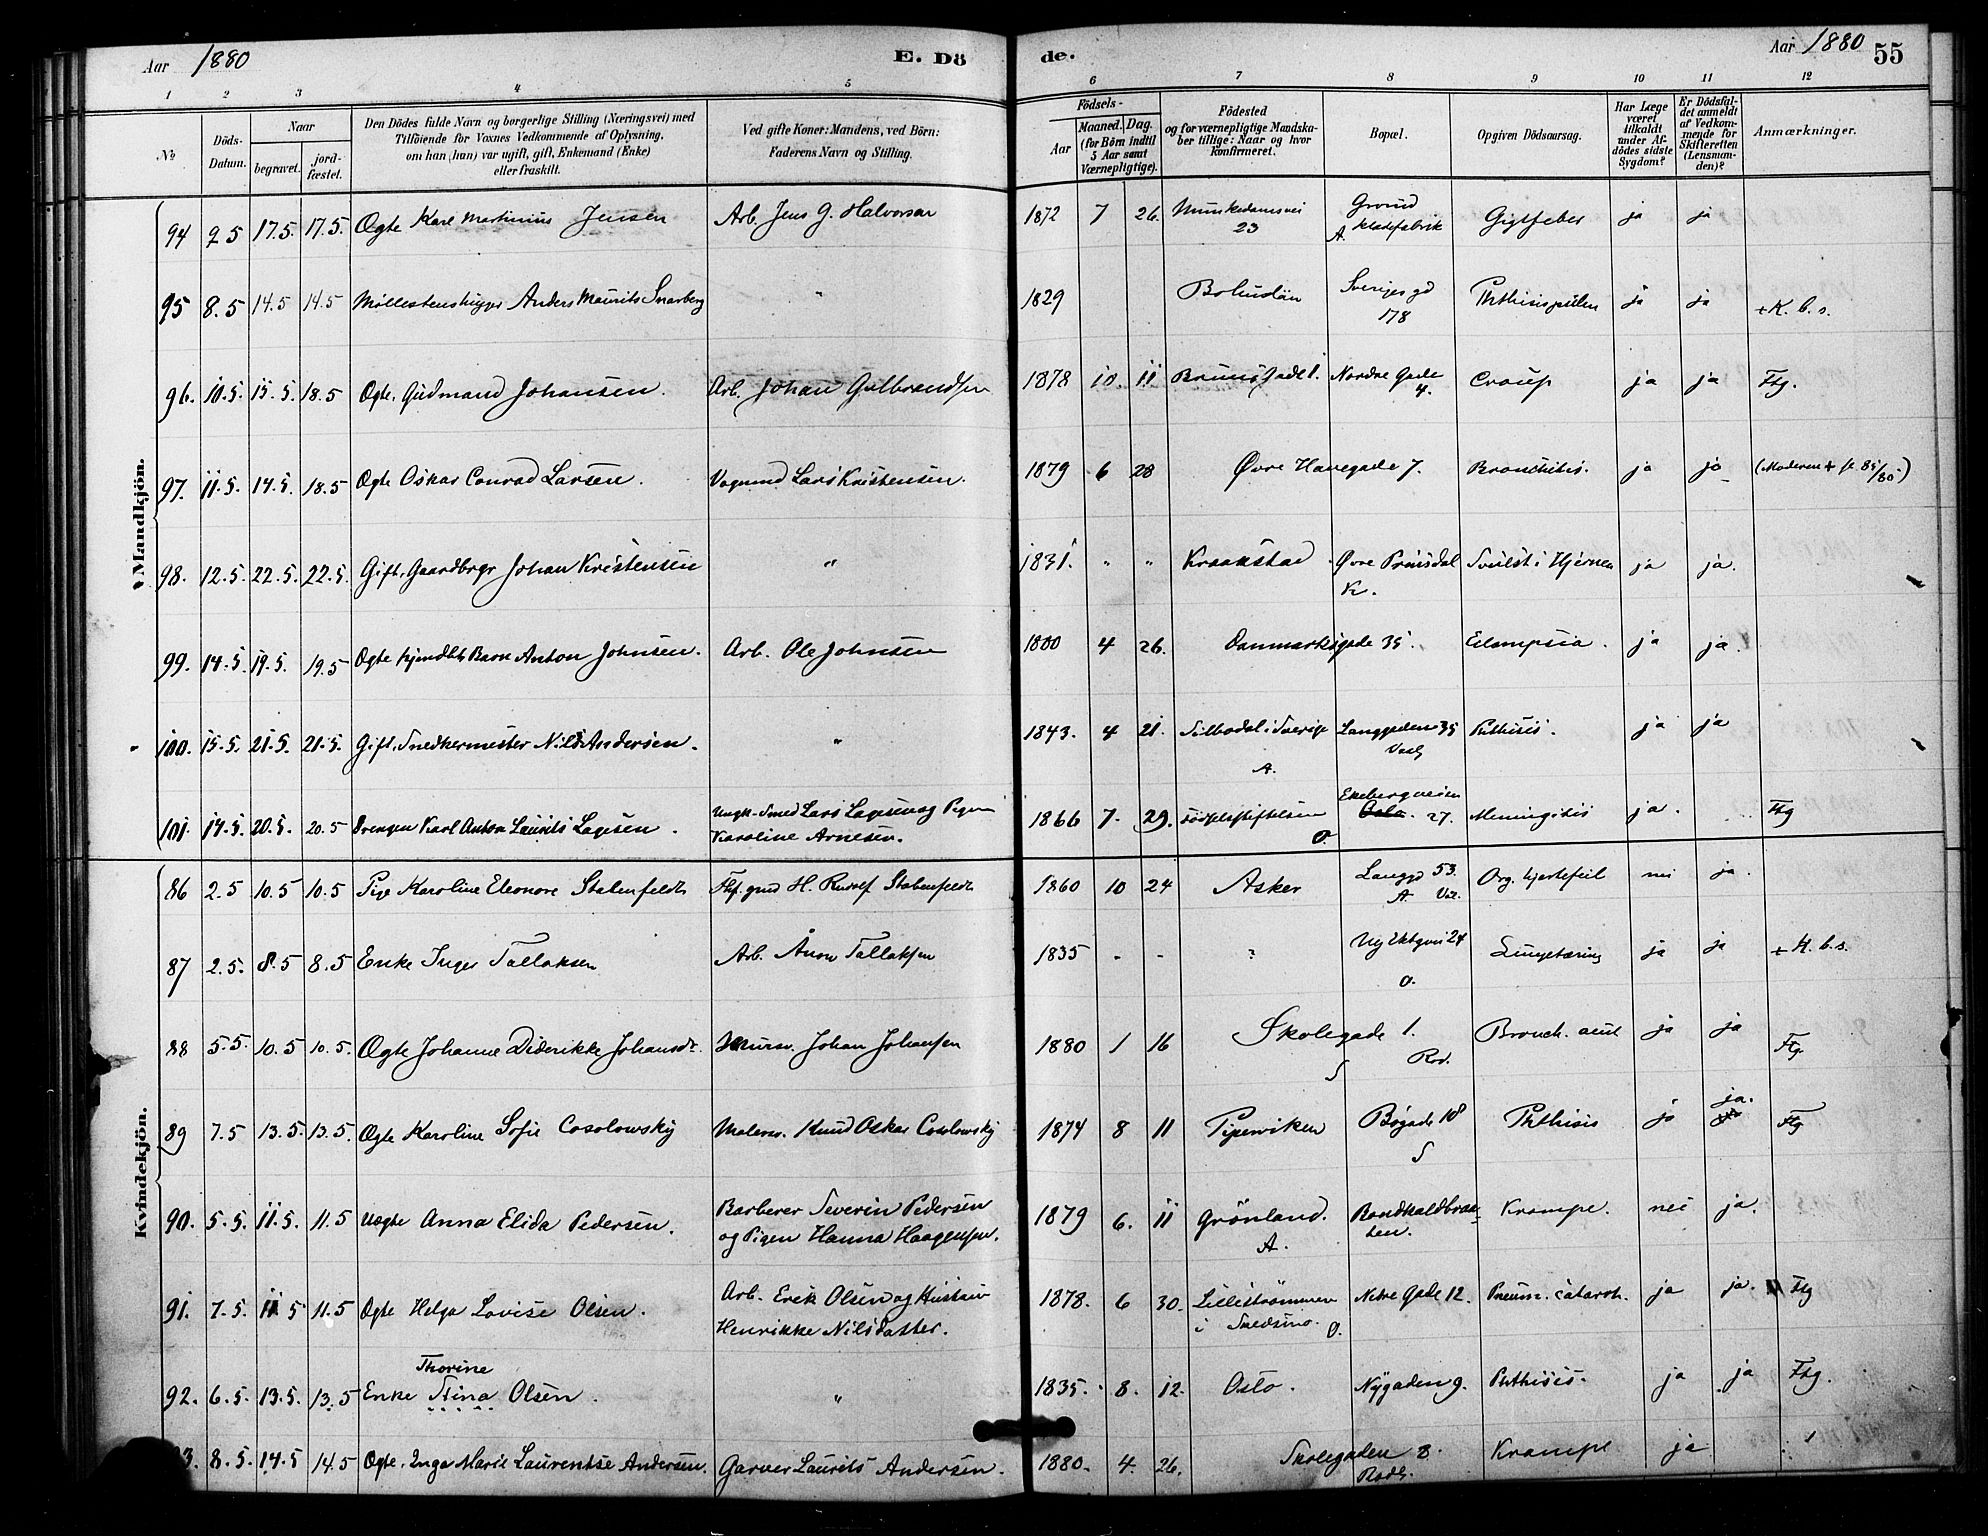 Aar 1880 E. Dö
de. Aar 1880 55
1 2 3 4 5 6 7 8 9 10 11 12
No
Döds-Datum.
Naar
begravet.
jord-fæstet.
Den Dödes fulde Navn og borgerlige Stilling (Næringsvei) med
Tilföiende for Voxnes Vedkommende af Oplysning,
om han (hun) var ugift, gift, Enkemand (Enke)
eller fraskilt.
Ved gifte Koner: Mandens, ved Börn:
Faderens Navn og Stilling.
Födsels-
Aar
Maaned. Dag.
(for Börn indtil
5 Aar samt
Værnepligtige).
Födested
og for værnepligtige Mandska-
ber tillige: Naar og hvor
konfirmeret.
Bopæl.
Opgiven Dödsaarsag.
Har Læge
været
tilkaldt
under Af-
dödes sidste
Sygdom?
Er Dödsfal-
det anmeldt
af Vedkom-
mende for
Skifteretten
(Lensman-
den)?
Anmærkninger.
Mandkjön.
94 9 5 17.5. 17.5. Ægte Karl Martinius Jensen Arb. Jens G. Halvorsen 1872 7 26. Munkedamsvei 23 Grorud Klædefabrik A. Gigtfeber ja ja
95 8.5 14.5 14.5 Møllestenshugger Anders Maurits Snarberg " 1829 Bohuslän Sveriges gd 178 ja ja + K. b. s.
96. 10.5. 15.5. 18.5 Ægte. Gudmand Johansen. Arb. Johan Gulbrandsen 1878 10. 11 Brunsgade 1. Nordre Gade 4. Croup ja ja Ftg.
97. 11.5. 14.5. 18.5 Ægte Oskar Conrad Larsen. Vognmd Lars Kristensen. 1879 6 28 Øvre Havegade 7. Bronchitis. ja ja (Moderen + 85/80)
98. 12.5. 22.5. 22.5. Gift. Gaardbrgr Johan Kristensen " 1831. " " Kraakstad Øvre Prinsdal K. Svulst i Hjernen ja ja.
99. 14.5. 19.5. 19.5 Ægte hjemdbt Barn Anton Johnsen. Arb. Ole Johnsen 1880 4 26. Danmarksgade 35. Eclampsia. ja ja.
100. 15.5. 21.5. 21.5. Gift. Snedkermester Nils Andersen. " 1843. 4 21. Silbodal i Sverige A. Langgaden 35 Phthisis. ja ja
101. 14.5. 20.5. 20.5 Drengen Karl Anton Laurits Lagesen. Ungk. Smed Lars Lagesen og Pigen
Karoline Arnesen. 1866 7. 29. Fødselsstiftelsen O. Ekebergveien Oslo. 27. Meningitis ja. Ftg
Kvindekjön.
86 2.5 10.5 10.5 Pige Karoline Eleonore Stabenfeldt H. Rudolf Stabenfeldt 1860 10 24 Asker Langgd 53. A. Vaal. Org. hjertefeil nei ja.
87 2.5. 8.5 8.5 Enke Inger Tallaksen Arb. Aron Tallaksen 1835 - - ? O. Lungetæring ja ja + K. b. s.
88 5.5. 10.5 10.5. Ægte Johanne Diderikke Johansdr. Mursv. Johan Johansen 1880 1 16 Skolegade 1. Rod. S Bronch. acut ja ja Ftg.
89 7.5 13.5. 13.5. Ægte Karoline Sofie Cosolowsky Malersv. Knud Oskar Cosolowsky 1874 8 11 Piperviken Bøgade 18 S Phthisis ja ja. Ftg
90. 5.5. 11.5. 11.5 Uægte Anna Elida Pedersen. Barberer Severin Pedersen
og Pigen Hanna Haagensen. 1879 6. 11 Grönland. A. Krampe. nei ja.
91. 7.5. 11 5 11.5 Ægte Helga Lovise Olsen. Arb. Erik Olsen og Hustru
Henrikke Nilsdatter. 1878. 6 30. Lilleströmmen
i Skedsmo. O. Nedre Gade 12. Pneum. catarrh. ja ja. Ftg
Thorine
92. 6.5. 13.5. 13.5 Enke Stina Olsen. " 1835. 8. 12. Oslo. Nygaden 9. Phthisis. ja ja Ftg.
93. 8.5. 14.5 14.5 Ægte. Inga Marie Laurentse Andersen. Garver Laurits Andersen. 1880. 4. 26. Skolegaden 8. Rodl. Krampe ja